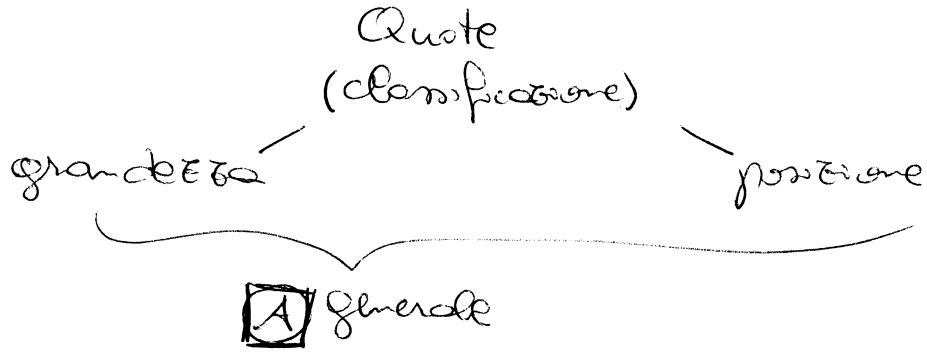 Quote
(classificazione)
grandezza posizione
A generale